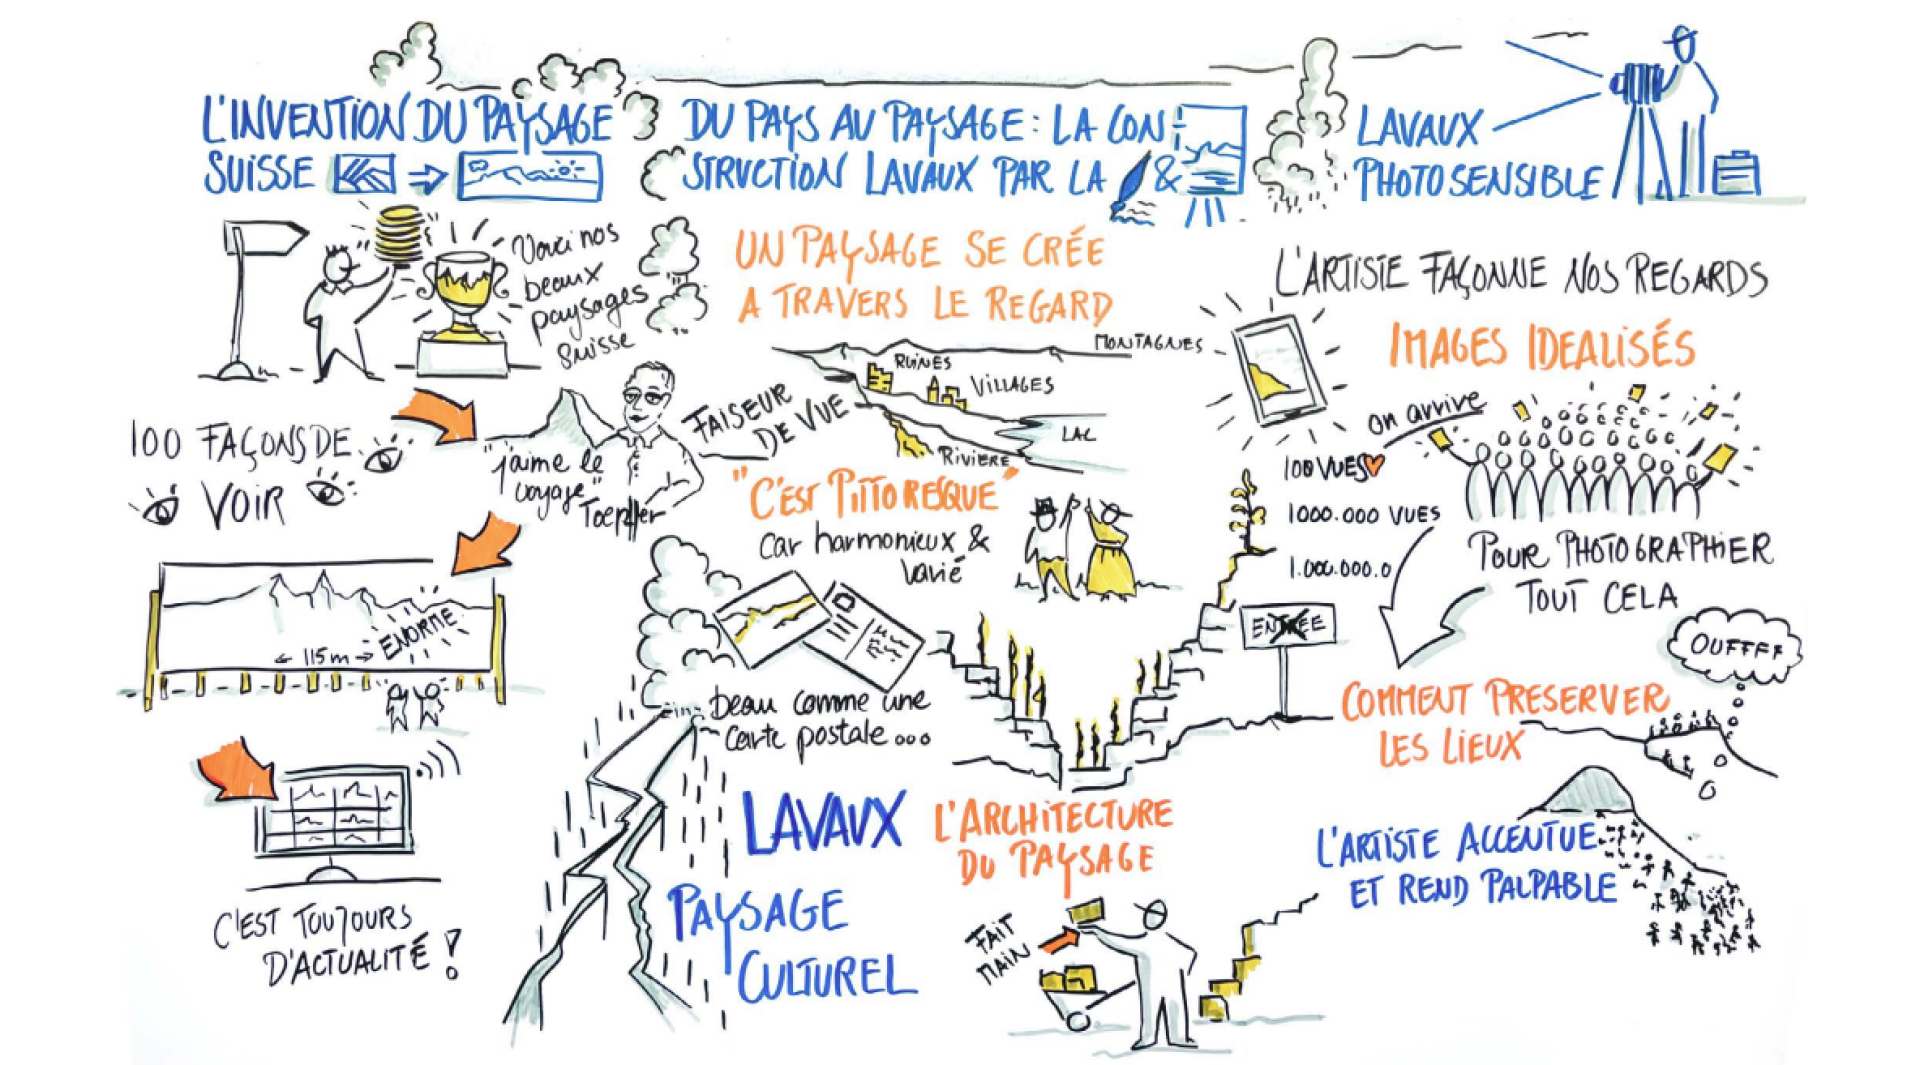 L'INVENTION DU PAYSAGE
SUISSE
Voici nos
beaux
paysages
suisse
100 FAÇONS DE
VOIR
"j'aime le
voyage"
Toepffer
← 115m →
ENORME
C'EST TOUJOURS
D'ACTUALITÉ !
DU PAYS AU PAYSAGE : LA CON-
STRUCTION LAVAUX PAR LA
&
UN PAYSAGE SE CRÉE
A TRAVERS LE REGARD
MONTAGNES
RUINES
VILLAGES
LAC
RIVIERE
FAISEUR
DE VUE
"C'EST PITTORESQUE"
car harmonieux &
varié
beau comme une
carte postale...
LAVAUX
PAYSAGE
CULTUREL
L'ARCHITECTURE
DU PAYSAGE
FAIT
MAIN
LAVAUX
PHOTOSENSIBLE
L'ARTISTE FAÇONNE NOS REGARDS
IMAGES IDEALISÉS
on arrive
100 VUES
1000.000 VUES
1.000.000.0
POUR PHOTOGRAPHIER
TOUT CELA
ENTREE
OUFFFF
COMMENT PRESERVER
LES LIEUX
L'ARTISTE ACCENTUE
ET REND PALPABLE